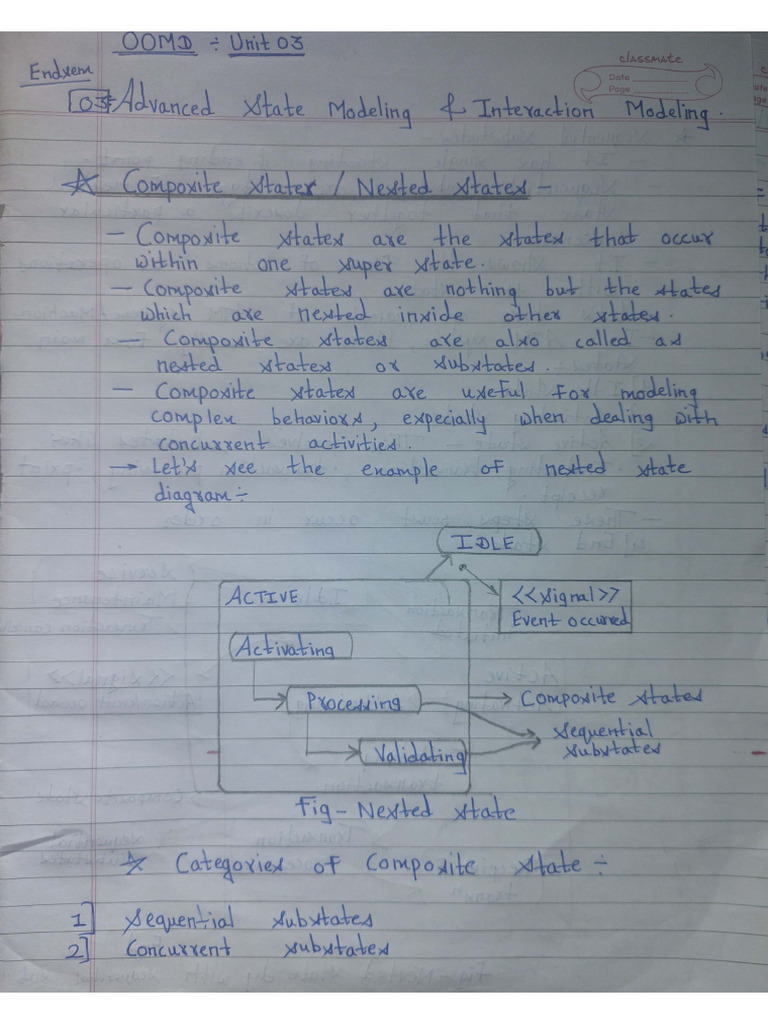 OOMD ÷ Unit 03
Endsem
classmate
Date
Page
03 Advanced State Modeling & Interaction Modeling.
☆ Composite States / Nested States -
- Composite states are the states that occur
within one super state.
- Composite states are nothing but the states
which are nested inside other states.
- Composite states are also called as
nested states or substates.
- Composite states are useful for modeling
complex behaviors, especially when dealing with
concurrent activities.
→ Let's see the example of nested state
diagram ÷
IDLE
ACTIVE
<<signal>>
Event occurred
Activating
Processing
Composite states
Sequential
substates
Validating
Fig - Nested state
☆ Categories of Composite State ÷
1] Sequential substates
2] Concurrent substates